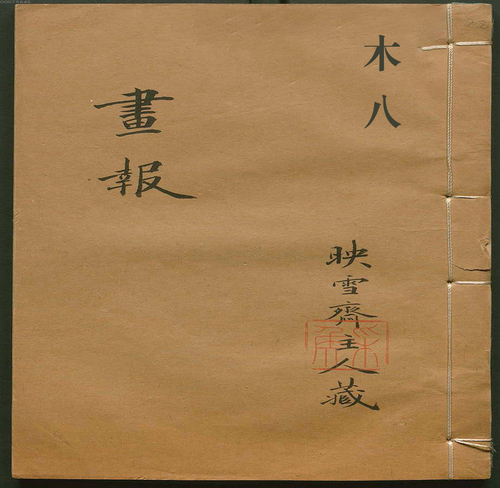 木八
畫報
映雪齋主人藏